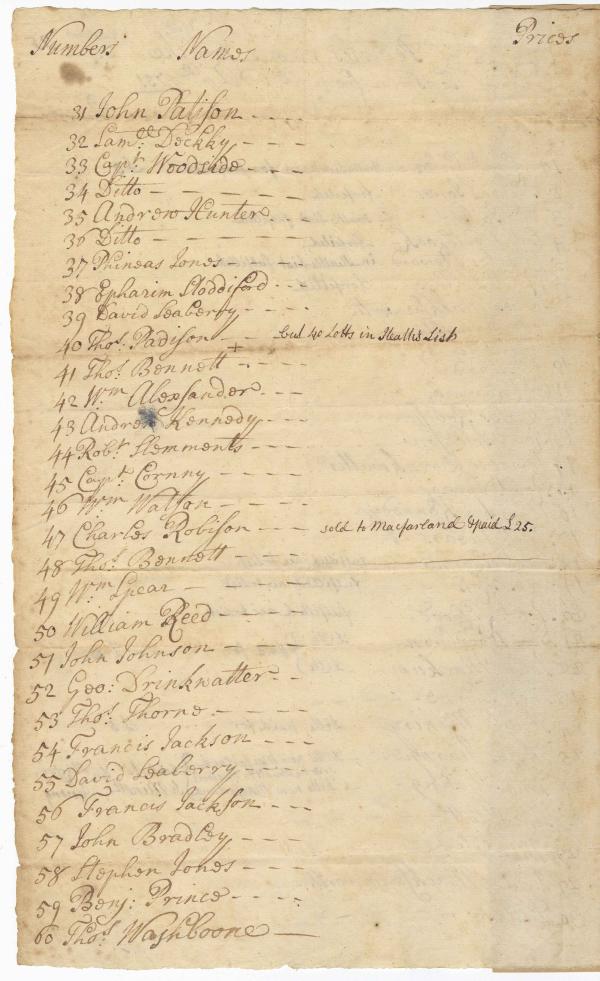 Numbers Names Prices
31 John Patison
32 Samll Deckky
33 Capt Woodside
34 Ditto
35 Andrew Hunter
36 Ditto
37 Phineas Jones
38 Epharim Stoddiford
39 David Seaberry
40 Thos. Padison but 40 Lotts in Heaths List
41 Thos. Bennett
42 Wm Alexsander
43 Andrew Kennedy
44 Robt Slemments
45 Capt Cornny
46 Wm Watson
47 Charles Robison sold to Macfarland & paid £25.
48 Thos. Bennett
49 Wm Spear
50 William Reed
51 John Johnson
52 Geo: Drinkwatter
53 Thos. Thorne
54 Francis Jackson
55 David Seaberry
56 Francis Jackson
57 John Bradley
58 Stephen Jones
59 Benj: Prince
60 Thos. Washboone